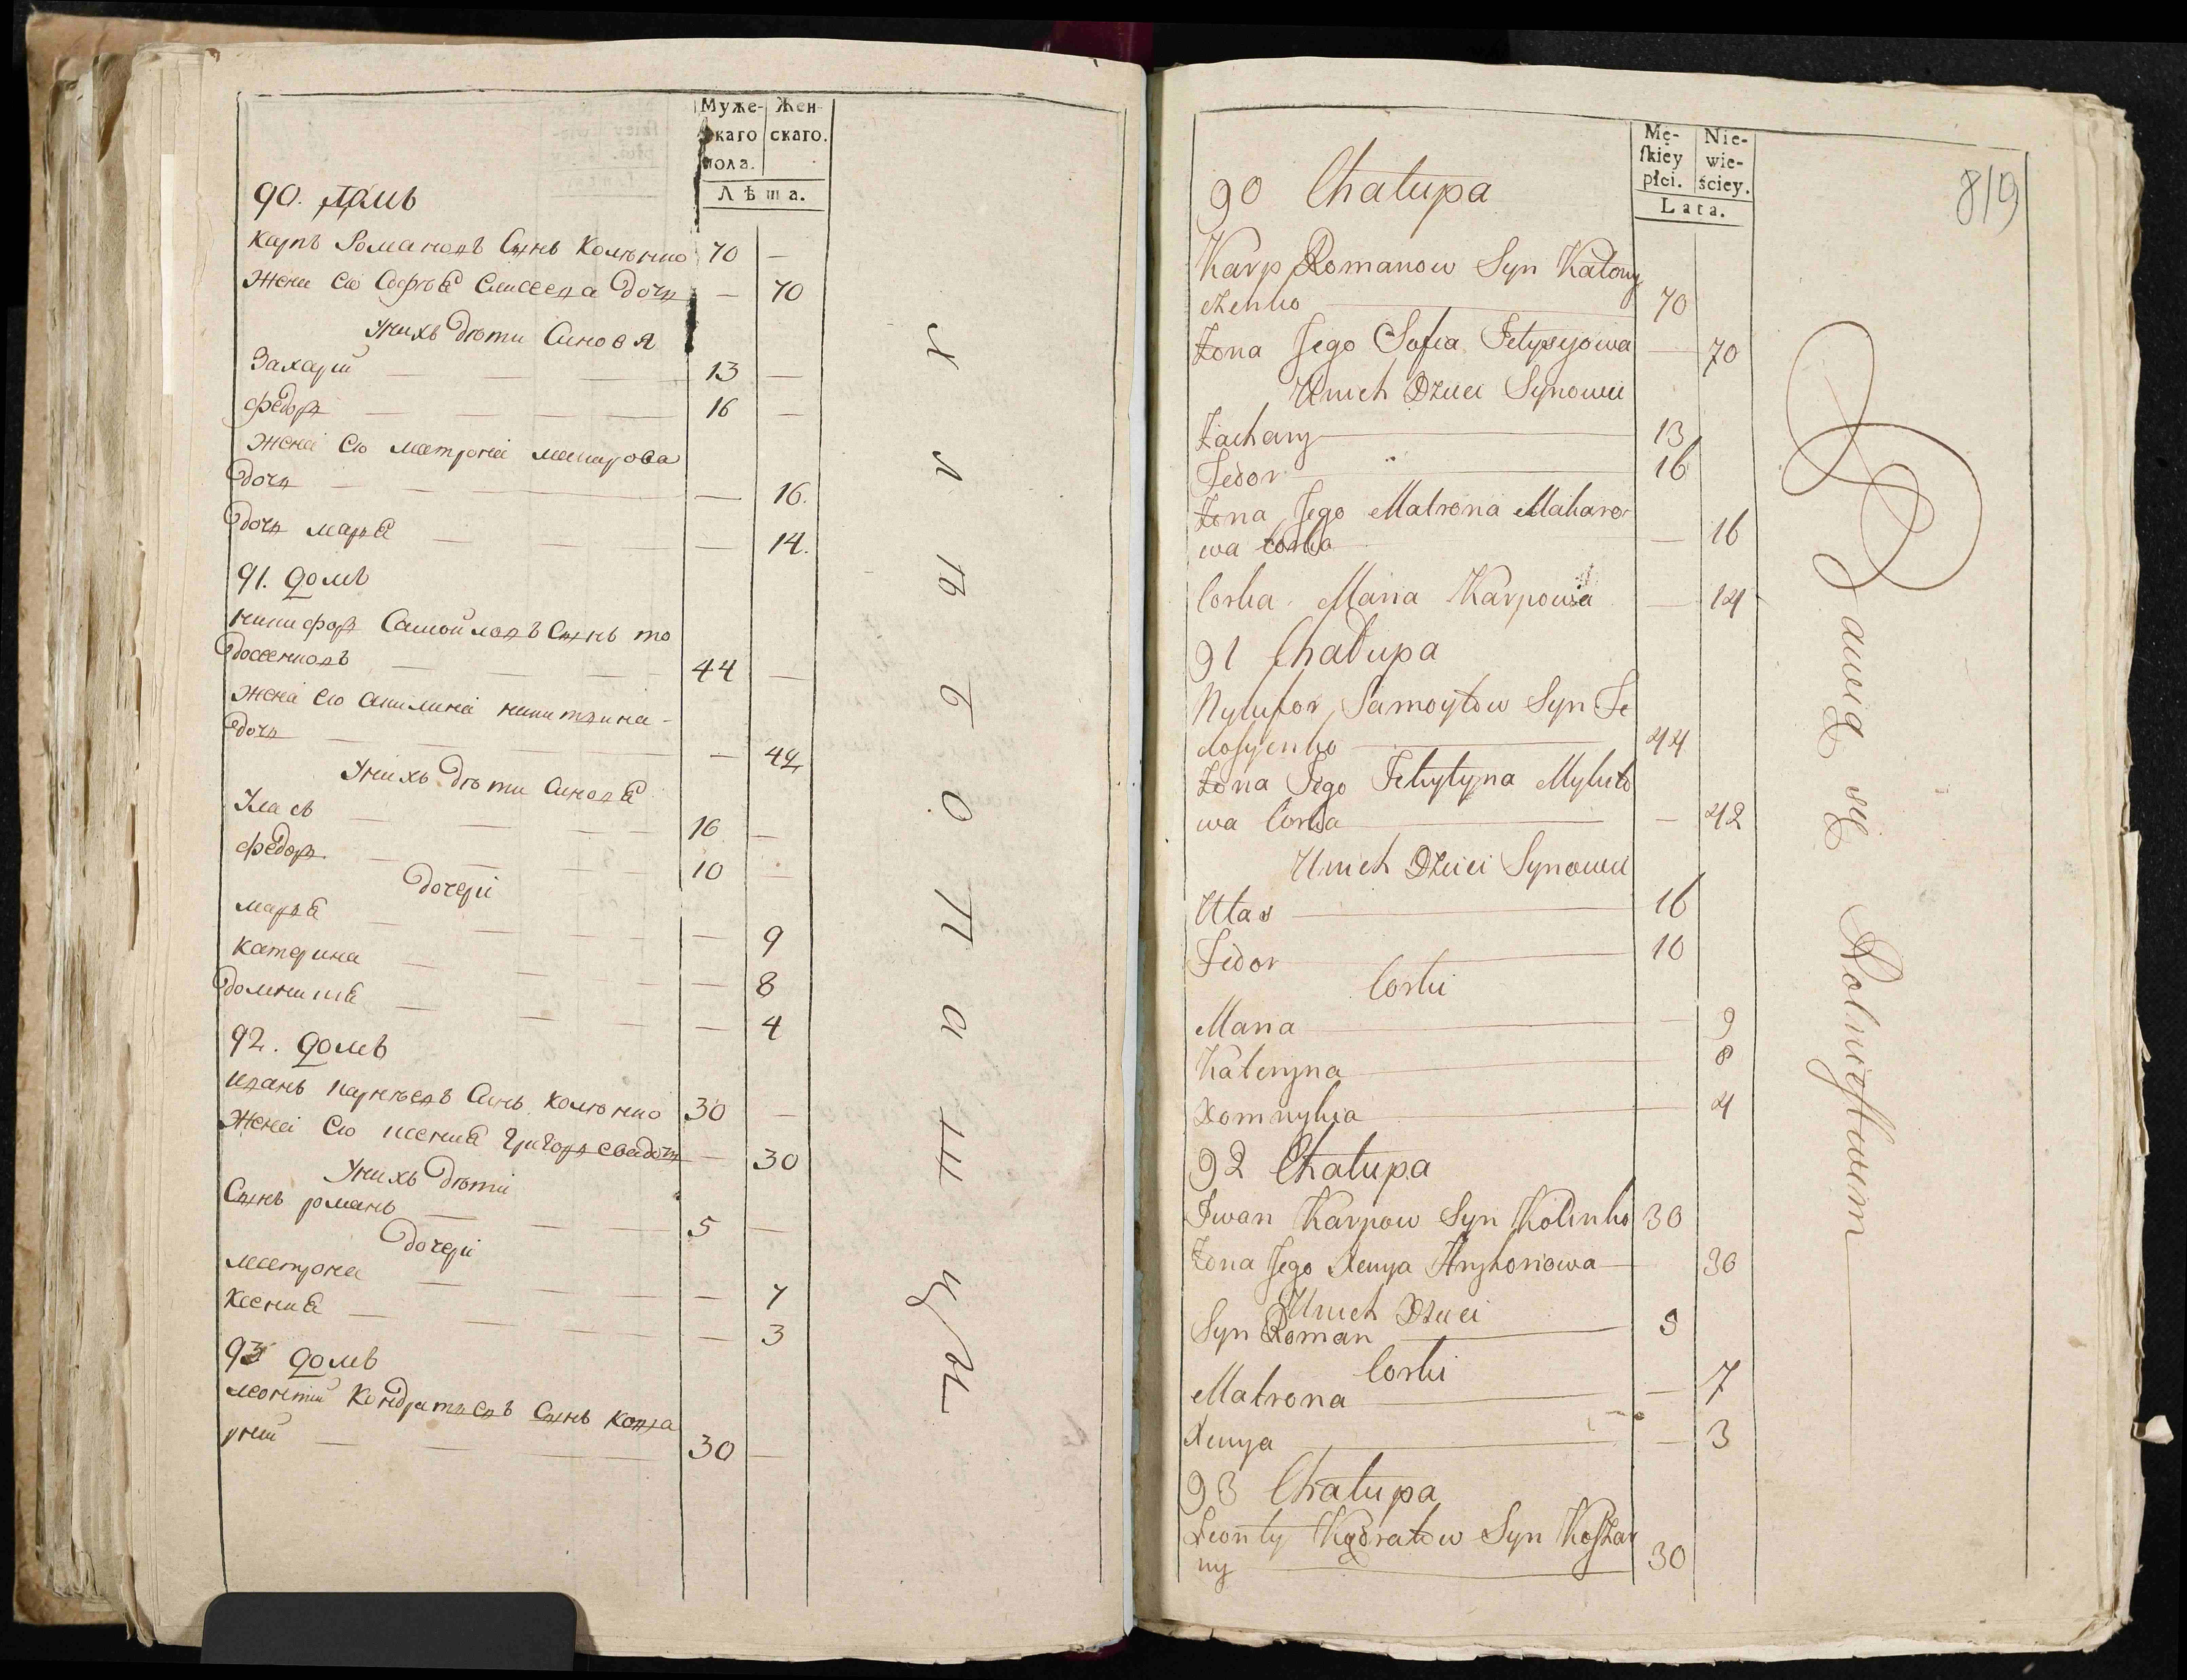 Муже-
скаго
пола.
Жен-
скаго.
Лѣта.
90. домъ
Карпъ Романовъ Сынъ Колѣнко 70 —
Жена Его Софѣя Елисеева дочь — 70
У нихъ дѣти Синовя
Захарій — 13 —
Федоръ — 16 —
Жена Его матрона макарова
дочь — 16.
дочь марья — 14.
91. домъ
никифоръ Самойловъ Сынъ
44 —
Жена Его Акилина никитина
дочь — 42
У нихъ дѣти Синовя
Улась — 16 —
Федоръ. — 10 —
дочери
марья — 9
катерина — 8
домникія — 4
92. домъ
иванъ карпѣевъ Синъ Колѣнко 30 —
Жена Его ксения Григорьева дочь — 30
У нихъ дѣти
Сынъ романъ — 5 —
дочери
матрона — 7
Ксения — 3
93 домъ
леонтій Кондратьевъ Сынъ Коша
рный — 30 —
Mę-
ſkiey
płci.
Nie-
wie-
ściey.
Lata.
819
90 Chałupa
Karp Romanow Syn Kalony
czenko 70
Żona Jego Sofia Jelysejowa — 70
Unich Dzieci Synowie
Zachary 13
Fedor 16
Żona Jego Matrona Makaro-
wa corka — 16
Corka Maria Karpowa — 14
91 Chałupa
Nykifor Samoyłow Syn Fe
dosyenko 44
Żona Jego Mykito
wa Corka — 42
Unich Dzieci Synowie
Ułas 16
Fedor 10
Corki
Maria — 9
Kateryna 8
Domnykia 4
92 Chałupa
Iwan Karpow Syn Kolenko 30
Żona Jego Xenya Hryhoriowa — 30
Unich Dzieci
Syn Roman 5
Corki
Matrona — 7
Xenya — 3
93 Chałupa
Leonty Kądratow Syn Koszar
ny 30
Bawią się Rolnictwem